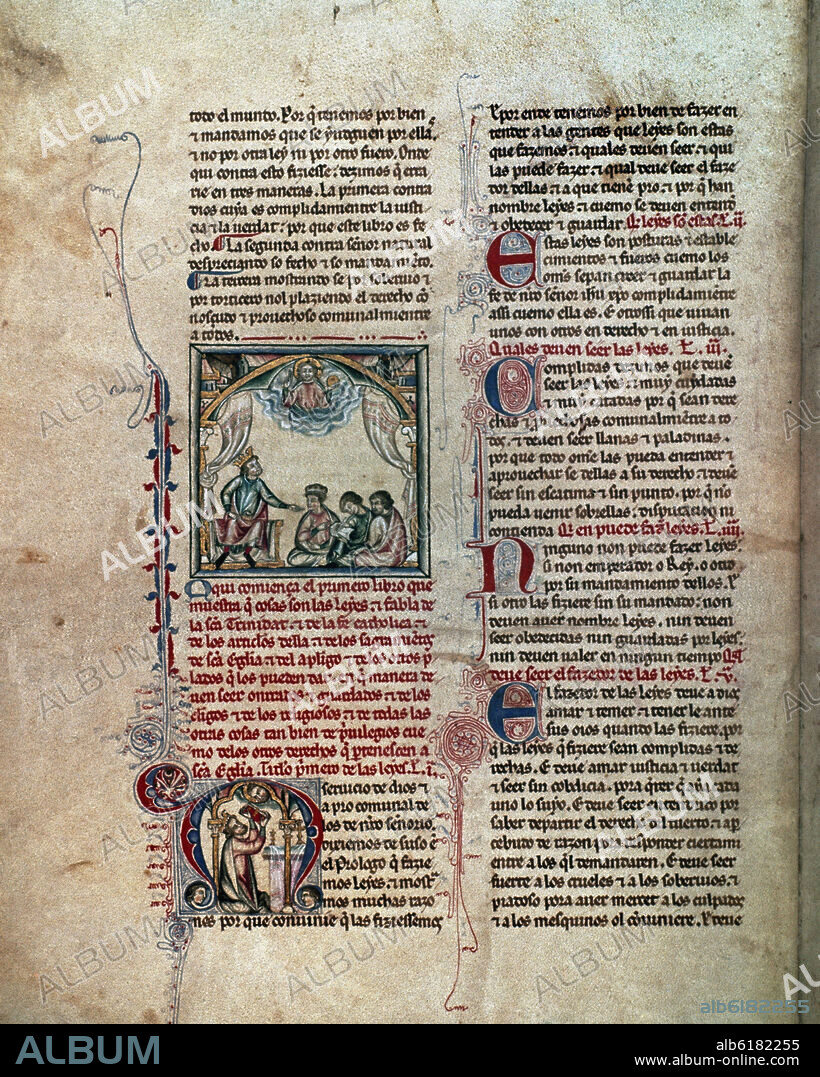 todo el mundo. Por q̄ tenemos por bien
⁊ mandamos que se yudguen por ella
⁊ no por otra ley ni por otro fuero. Onde
qui contra esto fiziesse: dezimos q̄ erra
rie en tres maneras. La primera contra
dios cuya es complidamientre la iusti
cia ⁊ la uerdat: por que este libro es fe
cho. La segunda contra señor natural
despreciando so fecho ⁊ so mandamiēto.
La tercera mostrando se por soberuio ⁊
por torticero nol plaziendo el derecho cō
nosçudo ⁊ prouechoso comunalmientre
a todos.
Qqui comiença el primero libro que
muestra q̄ cosas son las leyes. ⁊ fabla de
la sc̄a Trinidat. ⁊ de la fe catholica. ⁊
de los articlos della. ⁊ de los sacramētos
de sc̄a Eglīa ⁊ del apl̄igo ⁊ de los otros p̄
lados q̄ los pueden dar. ⁊ en q̄ manera de
uen seer onrrados ⁊ guardados ⁊ de los
cl̄igos ⁊ de los religiosos ⁊ de todas las
otras cosas tan bien de p̄uilegios cue
mo de los otros derechos q̄ p̄tenescen a
sc̄a Eglīa. Titulo p̄mero de las leyes. L. i.
A seruicio de dios ⁊
a pro comunal de
los de nr̄o sennorio.
dixiemos de suso ē
el Prologo q̄ fazie
mos leyes: ⁊ mostr̄a
mos muchas razo
nes por que conuinie q̄ las fiziessemos
E por ende tenemos por bien de fazer en
tender a las gentes que leyes son estas
que fazemos: ⁊ quales deuen seer: ⁊ qui
las puede fazer: ⁊ qual deue seer el faze
dor dellas ⁊ a que tienē pro: ⁊ por q̄ han
nombre leyes: ⁊ cuemo se deuen entend̄
⁊ obedecer ⁊ guardar. Q̄ leyes sō estas. L. ii.
Estas leyes son posturas ⁊ estable
cimientos ⁊ fueros cuemo los
om̄s sepan creer ⁊ guardar la
fe de nr̄o señor ihū xp̄o complidamiētre
assi cuemo ella es. E otrossi que uiuan
unos con otros en derecho ⁊ en iusticia.
Quales deuen seer las leyes. L. iii.
Complidas dezimos que deuē
seer las leyes: ⁊ muy cuydadas
⁊ muy catadas por q̄ sean dere
chas ⁊ prouechosas comunalmientre a to
dos. ⁊ deuen seer llanas ⁊ paladinas.
por que todo omē las pueda entender ⁊
aprouechar se dellas a su derecho: ⁊ deuē
seer sin escatima ⁊ sin punto. por q̄ no
pueda uenir sobrellas: disputacion ni
contienda. Q̄i en puede faz̄ leyes. L. iiii.
Ninguno non puede fazer leyes:
si non emperador o Rey. o otro
por su mandamiento dellos. E
si otro las fiziere sin su mandado: non
deuen auer nombre leyes. nin deuen
seer obedecidas nin guardadas por leyes:
nin deuen ualer en ningun tiempo. Q̄l
deue seer el fazedor de las leyes. L. v.
El fazedor de las leyes deue a dios
amar ⁊ temer ⁊ tener le ante
sus oios quando las fiziere. por
q̄ las leyes q̄ fiziere sean complidas ⁊ de
rechas. E deue amar iusticia ⁊ uerdat
⁊ seer sin cobdicia. pora q̄rer q̄ aya cada
uno lo suyo. E deue seer entendudo por
saber departir el derecho del tuerto: ⁊ aper
cebudo de razon pora responder ciertami
entre a los q̄l demandaren. E deue seer
fuerte a los crueles ⁊ a los soberuios. ⁊
piadoso pora auer mercet a los culpados
⁊ a los mesquinos ol cōuiniere. E deue
ALBUM
alb6182255
ALBUM
alb6182255
www.album-online.com